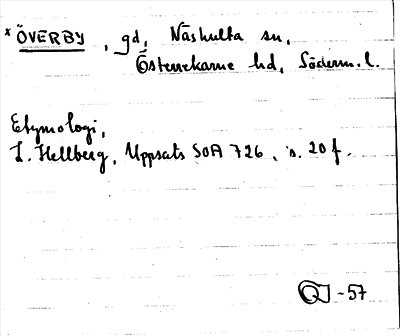 * ÖVERBY, gd, Näshulta sn,
Österrekarne hd, Söderm. l.
Etymologi,
L. Hellberg, Uppsats SOA 726, s. 20 f.
-57